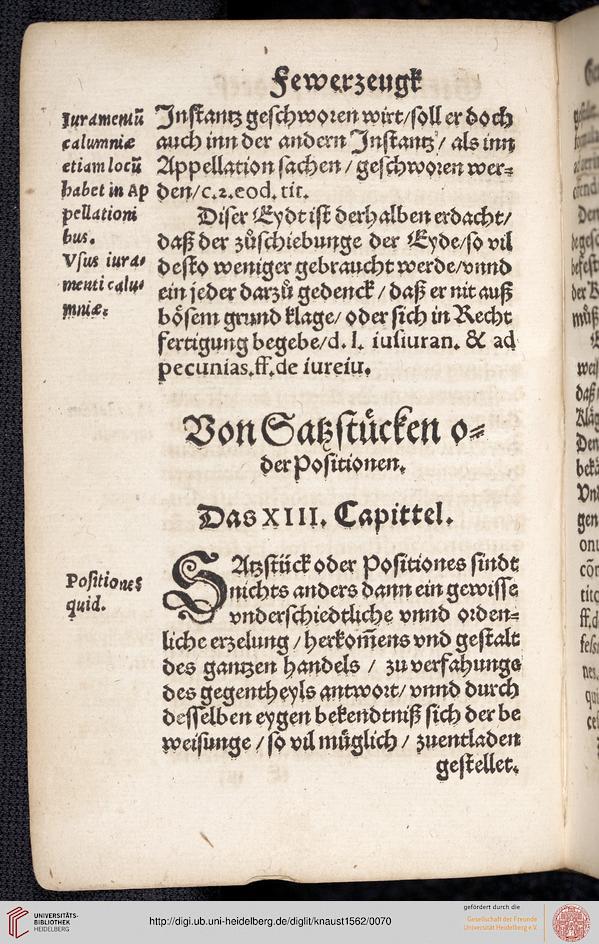 Fewerzeugk
Juramentū
calumniæ
etiam locū
habet in Ap
pellationi
bus.
Vsus iura-
menti calu-
mniæ.
Instantz geschworen wirt/soll er doch
auch inn der andern Instantz/ als inn
Appellation sachen / geschworen wer=
den/c.2.eod. tit.
Diser Eydt ist derhalben erdacht/
daß der zůschiebunge der Eyde/so vil
desto weniger gebraucht werde/vnnd
ein jeder darzů gedenck / daß er nit auß
bösem grund klage/ oder sich in Recht
fertigung begebe/d. l. iusiuran. & ad
pecunias.ff.de iureiu.
Von Satzstücken o=
der Positionen.
Das XIII. Capittel.
Positiones
quid.
SAtzstück oder Positiones sindt
nichts anders dann ein gewisse
vnderschiedtliche vnnd orden=
liche erzelung / herkom̄ens vnd gestalt
des gantzen handels / zu verfahunge
des gegentheyls antwort/ vnnd durch
desselben eygen bekendtniß sich der be
weisunge /so vil müglich / zuentladen
gestellet.
UNIVERSITÄTS-
BIBLIOTHEK
HEIDELBERG
http://digi.ub.uni-heidelberg.de/diglit/knaust1562/0070
gefördert durch die
Gesellschaft der Freunde
Universität Heidelberg e.V.